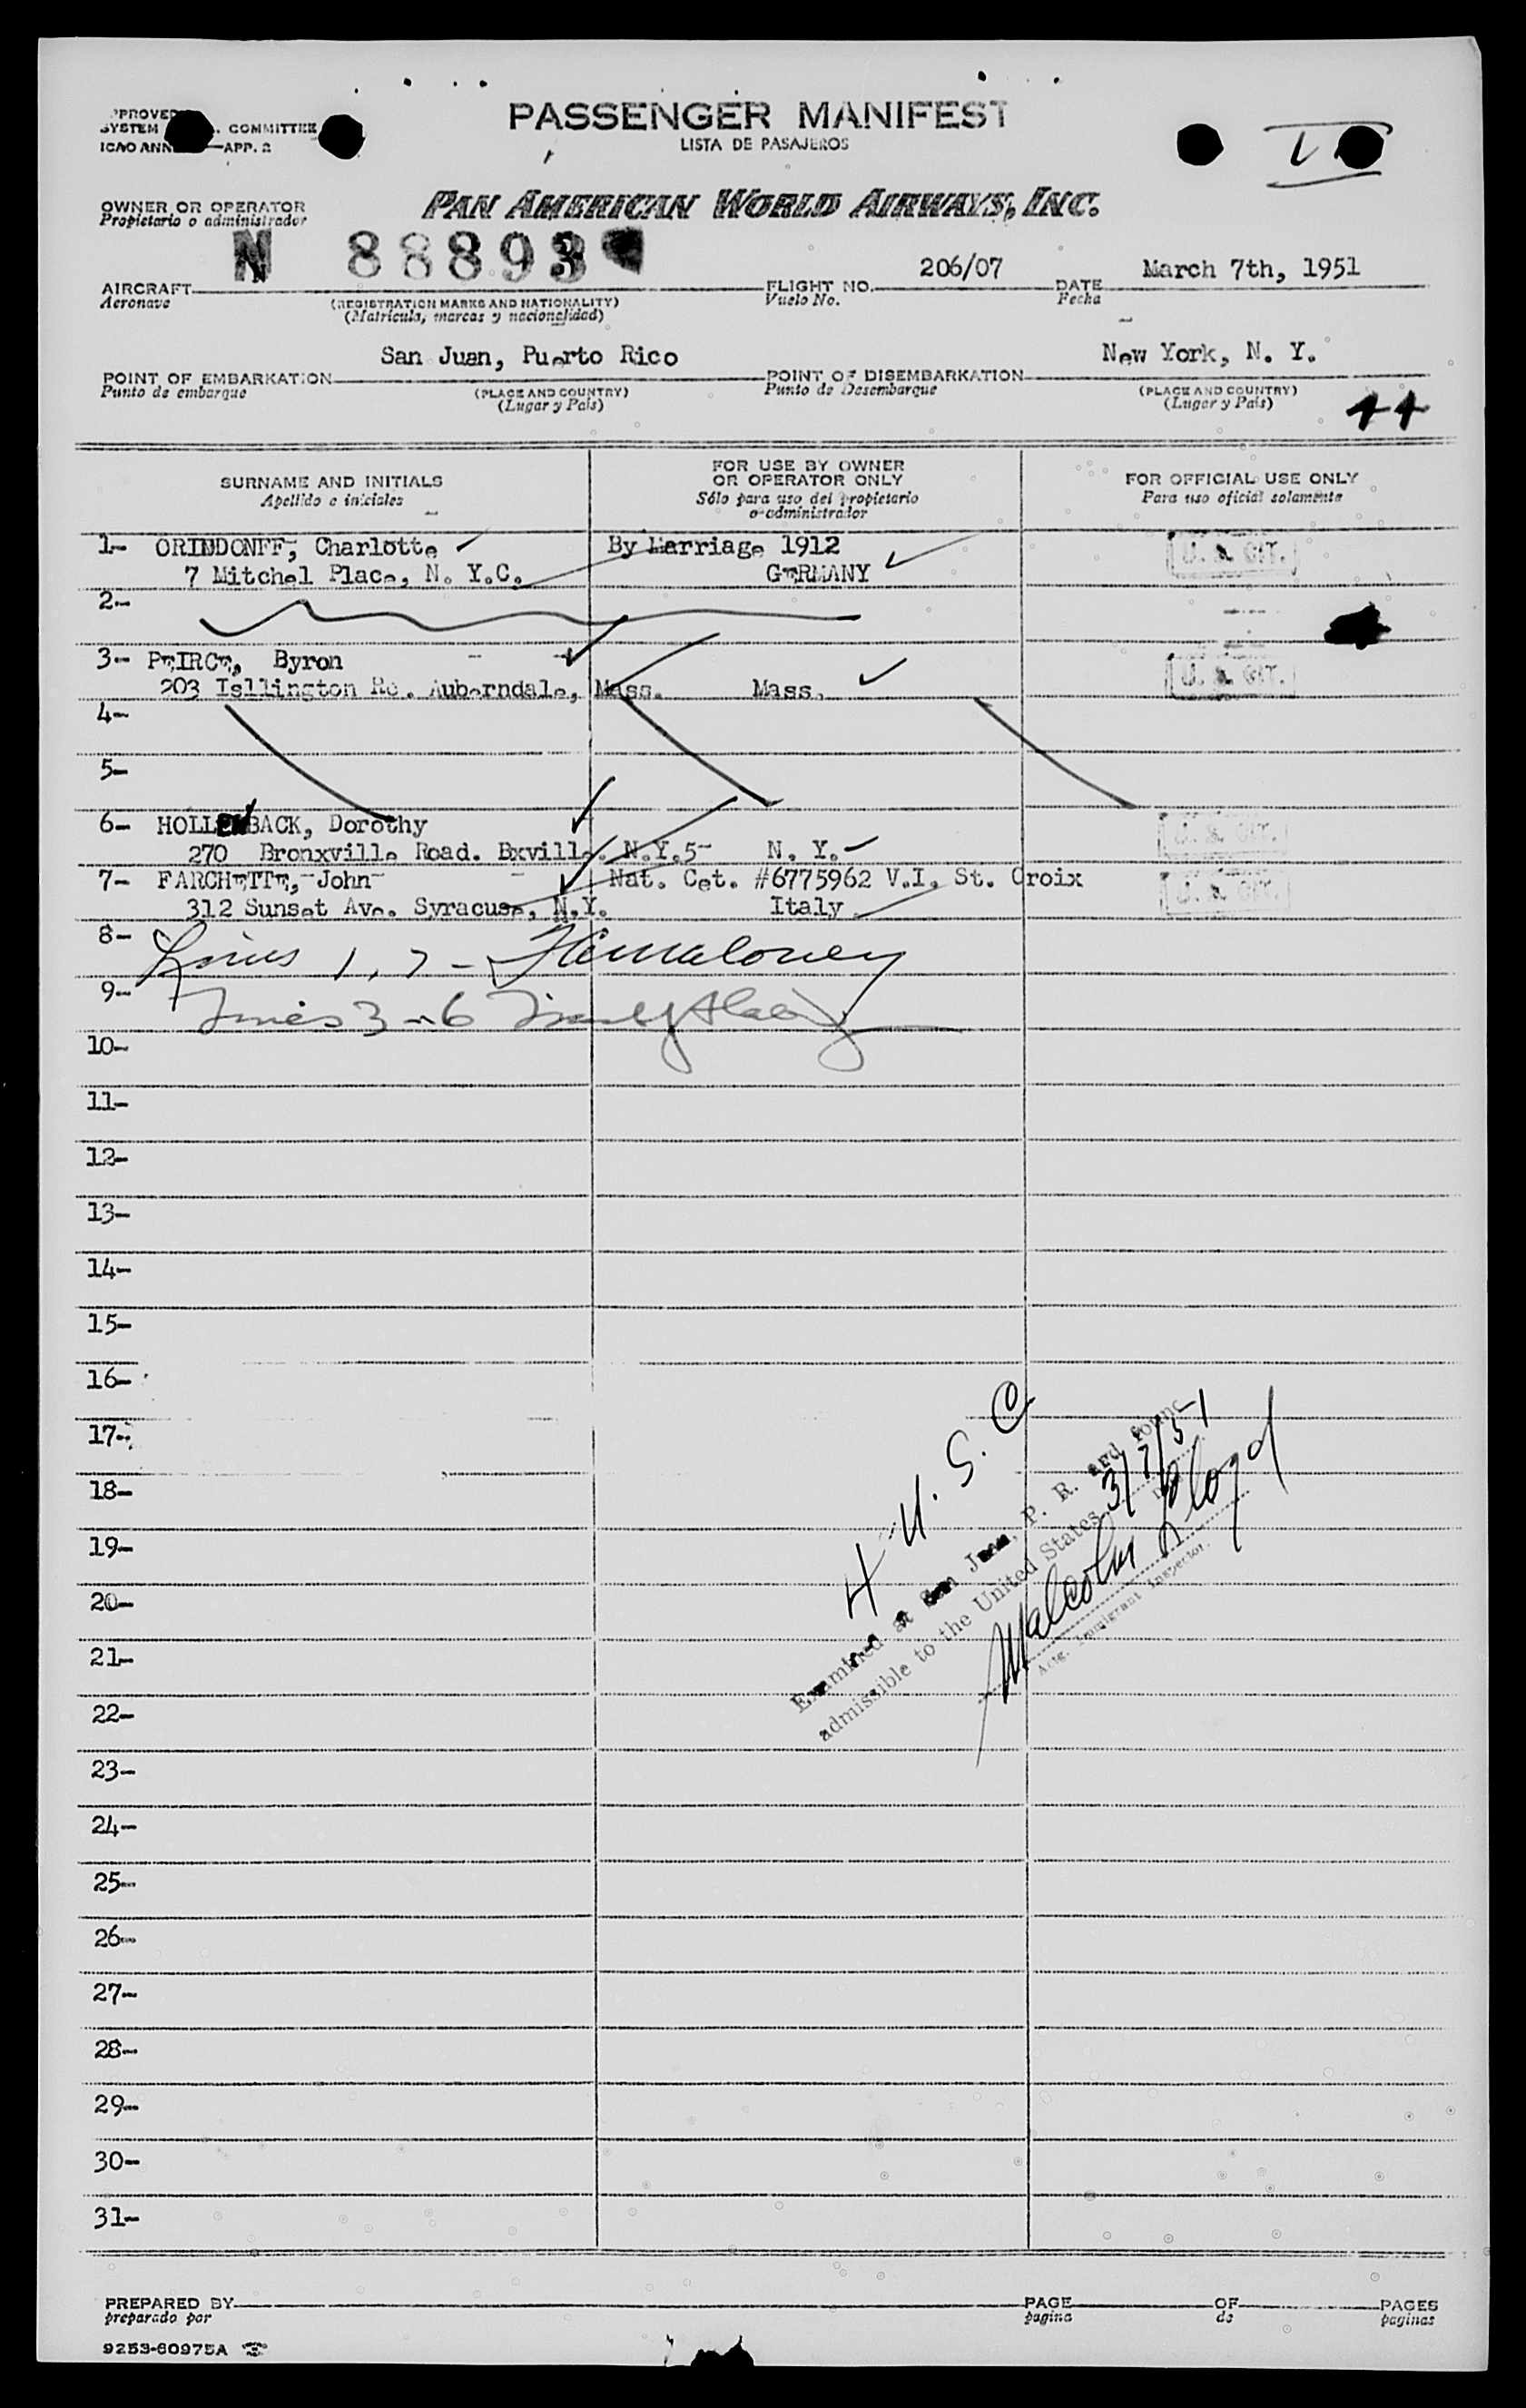 PASSENGER MANIFEST
LISTA DE PASAJEROS
COMMITTEE
APP. 2
OWNER OR OPERATOR
Propietario o administrador
PAN AMERICAN WORLD AIRWAYS, INC.
N 88893
206/07
March 7th, 1951
AIRCRAFT
Aeronave
(REGISTRATION MARKS AND NATIONALITY)
(Matricula, marcas y nacionalidad)
FLIGHT NO.
Vuelo No.
DATE
Fecha
San Juan, Puerto Rico
New York, N. Y.
POINT OF EMBARKATION
Punto de embarque
(PLACE AND COUNTRY)
(Lugar y Pais)
POINT OF DISEMBARKATION
Punto de Desembarque
(PLACE AND COUNTRY)
(Lugar y Pais)
SURNAME AND INITIALS
Apellido e iniciales
FOR USE BY OWNER
OR OPERATOR ONLY
Sólo para uso del propietario
o administrador
FOR OFFICIAL USE ONLY
Para uso oficial solamente
1- ORINDONFF, Charlotte By Marriage 1912 U. S. CIT.
7 Mitchel Place, N. Y.C. GERMANY
2-
3- PEIRCE, Byron U. S. CIT.
203 Isllington Rd. Auberndale, Mass. Mass.
4-
5-
6- HOLLENBACK, Dorothy U. S. CIT.
270 Bronxville Road. Bxville. N.Y.5- N. Y.
7- FARCHETTE, John Nat. Cet. #6775962 V.I. St. Croix U. S. CIT.
312 Sunset Ave. Syracuse, N.Y. Italy
8- Lines 1, 7 -
9- Lines 3 6
10-
11-
12-
13-
14-
15-
16-
17-
18-
19-
20-
21-
22-
23-
24-
25-
26-
27-
28-
29-
30-
31-
4 U. S. C
Examined at San Juan, P. R. and found
admissible to the United States 3/7/51
Malcolm Lloyd
Actg. Immigrant Inspector.
PREPARED BY
preparado por
PAGE
pagina
OF
de
PAGES
paginas
9253-60975A